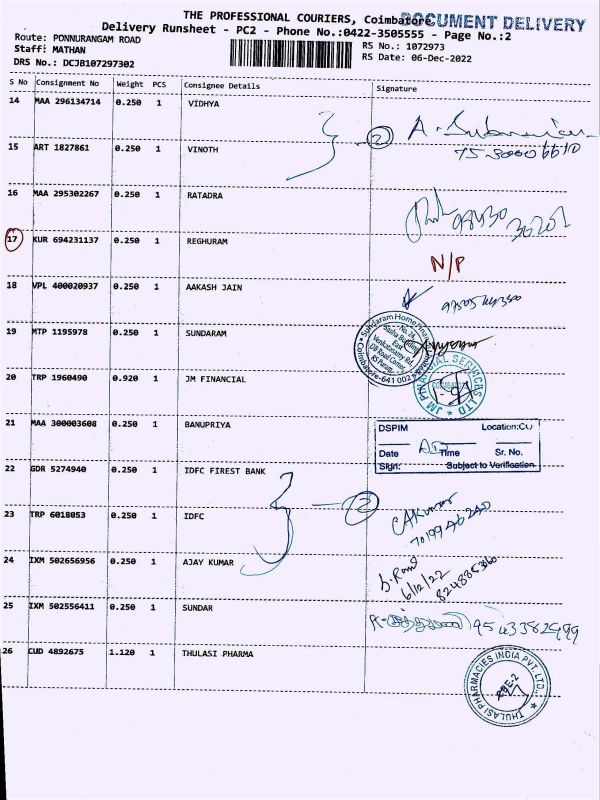 THE PROFESSIONAL COURIERS, Coimbatore
DOCUMENT DELIVERY
Delivery Runsheet - PC2 - Phone No.:0422-3505555 - Page No.:2
Route: PONNURANGAM ROAD
RS No.: 1072973
Staff: MATHAN
RS Date: 06-Dec-2022
DRS No.: DCJB107297302
S No Consignment No Weight PCS Consignee Details Signature
14 MAA 296134714 0.250 1 VIDHYA
15 ART 1827861 0.250 1 VINOTH
2
16 MAA 295302267 0.250 1 RATADRA
17 KUR 694231137 0.250 1 REGHURAM N/P
18 VPL 400020937 0.250 1 AAKASH JAIN
19 MTP 1195978 0.250 1 SUNDARAM
Sundaram Home Finance Limited
No. 24,
East
Venkatasamy Rd.
DB Road Corner,
RS Puram
Coimbatore-641 002
20 TRP 1960490 0.920 1 JM FINANCIAL
JM FINANCIAL SERVICES LTD
21 MAA 300003608 0.250 1 BANUPRIYA
DSPIM Location:CO
Date Time Sr. No.
Sign: Subject to Verification
22 GDR 5274940 0.250 1 IDFC FIREST BANK
2
23 TRP 6018053 0.250 1 IDFC
24 IXM 502656956 0.250 1 AJAY KUMAR
6/12/22
25 IXM 502556411 0.250 1 SUNDAR
26 CUD 4892675 1.120 1 THULASI PHARMA
THULASI PHARMACIES INDIA PVT. LTD.
CBE-2